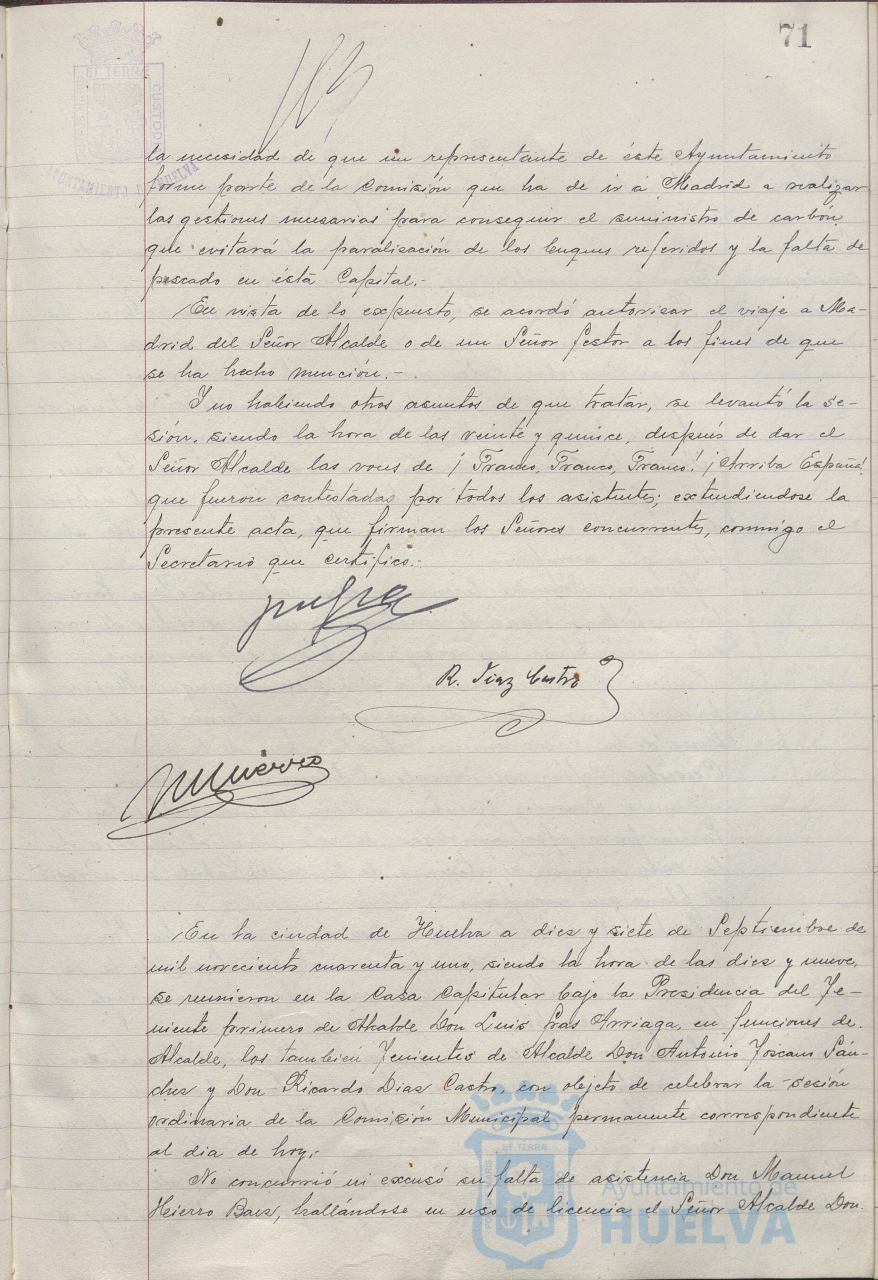 71
EL TERRÆ
CUSTODIA
AYUNTAMIENTO DE HUELVA
la necesidad de que un representante de éste Ayuntamiento
forme parte de la Comisión que ha de ir á Madrid a realizar
las gestiones necesarias para conseguir el suministro de carbón,
que evitará la paralización de los buques referidos y la falta de
pescado en ésta Capital.-
En vista de lo expuesto, se acordó autorizar el viaje a Ma-
drid del Señor Alcalde o de un Señor Gestor a los fines de que
se ha hecho mención.-
Y no habiendo otros asuntos de que tratar, se levantó la se-
sión, siendo la hora de las veinte y quince, después de dar el
Señor Alcalde las voces de ¡Franco, Franco, Franco! ¡Arriba España!
que fueron contestadas por todos los asistentes; extendiendose la
presente acta, que firman los Señores concurrentes, conmigo el
Secretario que certifico.-
R. Diaz Castro
En la ciudad de Huelva a diez y siete de Septiembre de
mil novecientos cuarenta y uno, siendo la hora de las diez y nueve,
se reunieron en la Casa Capitular bajo la Presidencia del Te-
niente primero de Alcalde Don Luis Gras Arriaga, en funciones de
Alcalde, los también Tenientes de Alcalde Don Antonio Toscano Sán-
chez y Don Ricardo Diaz Castro, con objeto de celebrar la sesión
ordinaria de la Comisión Municipal permanente correspondiente
al dia de hoy.-
No concurrió ni excusó su falta de asistencia Don Manuel
Hierro Baez, hallándose en uso de licencia el Señor Alcalde Don
ET TERRÆ
Ayuntamiento de
HUELVA